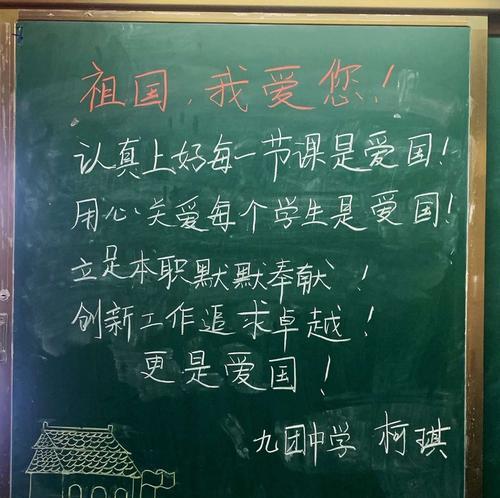 祖国,我爱您!
认真上好每一节课是爱国!
用心关爱每个学生是爱国!
立足本职默默奉献!
创新工作追求卓越!
更是爱国!
九团中学 柯琪